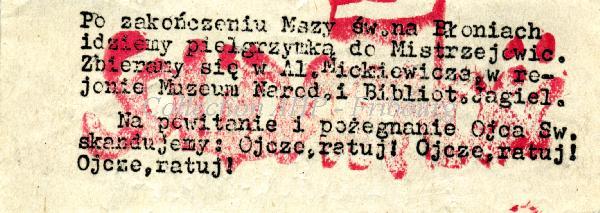 Po zakończeniu Mszy św.na Błoniach
idziemy pielgrzymką do Mistrzejowic.
Zbieramy się w Al.Mickiewicza,w re-
jonie Muzeum Narod.i Bibliot.Jagiel.
Na powitanie i pożegnanie Ojca Św.
skandujemy: Ojcze,ratuj! Ojcze,ratuj!
Ojcze,ratuj!